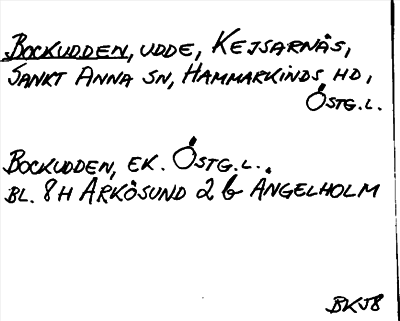 BOCKUDDEN, UDDE, KEJSARNÄS,
SANKT ANNA SN, HAMMARKINDS HD,
ÖSTG.L.
BOCKUDDEN, EK. ÖSTG.L.
BL. 8H ARKÖSUND 2 b ANGELHOLM
BKJB